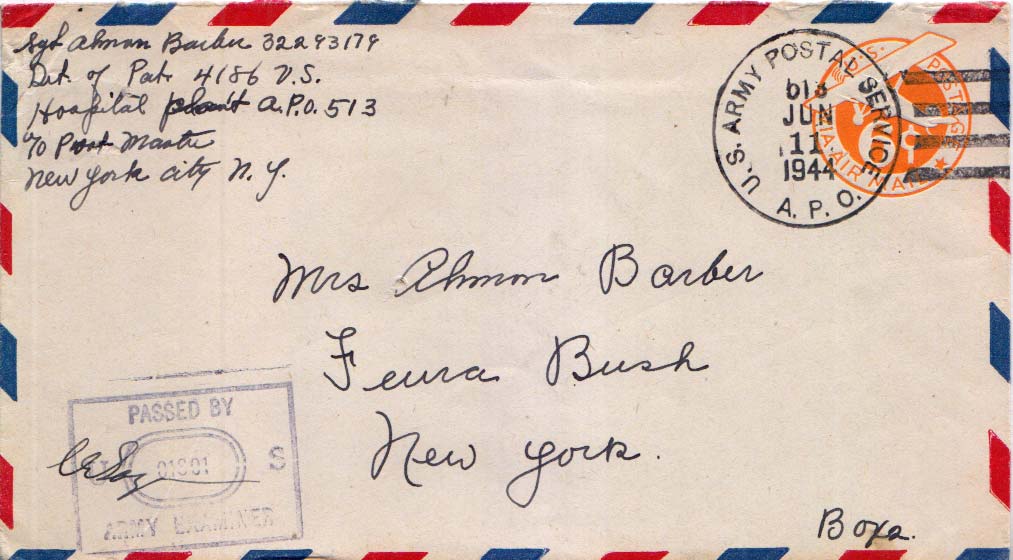 Sgt Ahmon Barber 32293179
Det. of Pat. 4186 U.S.
Hospital plant A.P.O. 513
℅ Post Master
New York City N.Y.
U.S. ARMY POSTAL SERVICE
JUN
11
1944
A. P. O.
U.S. POSTAGE
VIA AIR MAIL
6¢
Mrs Ahmon Barber
Feura Bush
New York.
PASSED BY
U S
ARMY EXAMINER
Box 2.